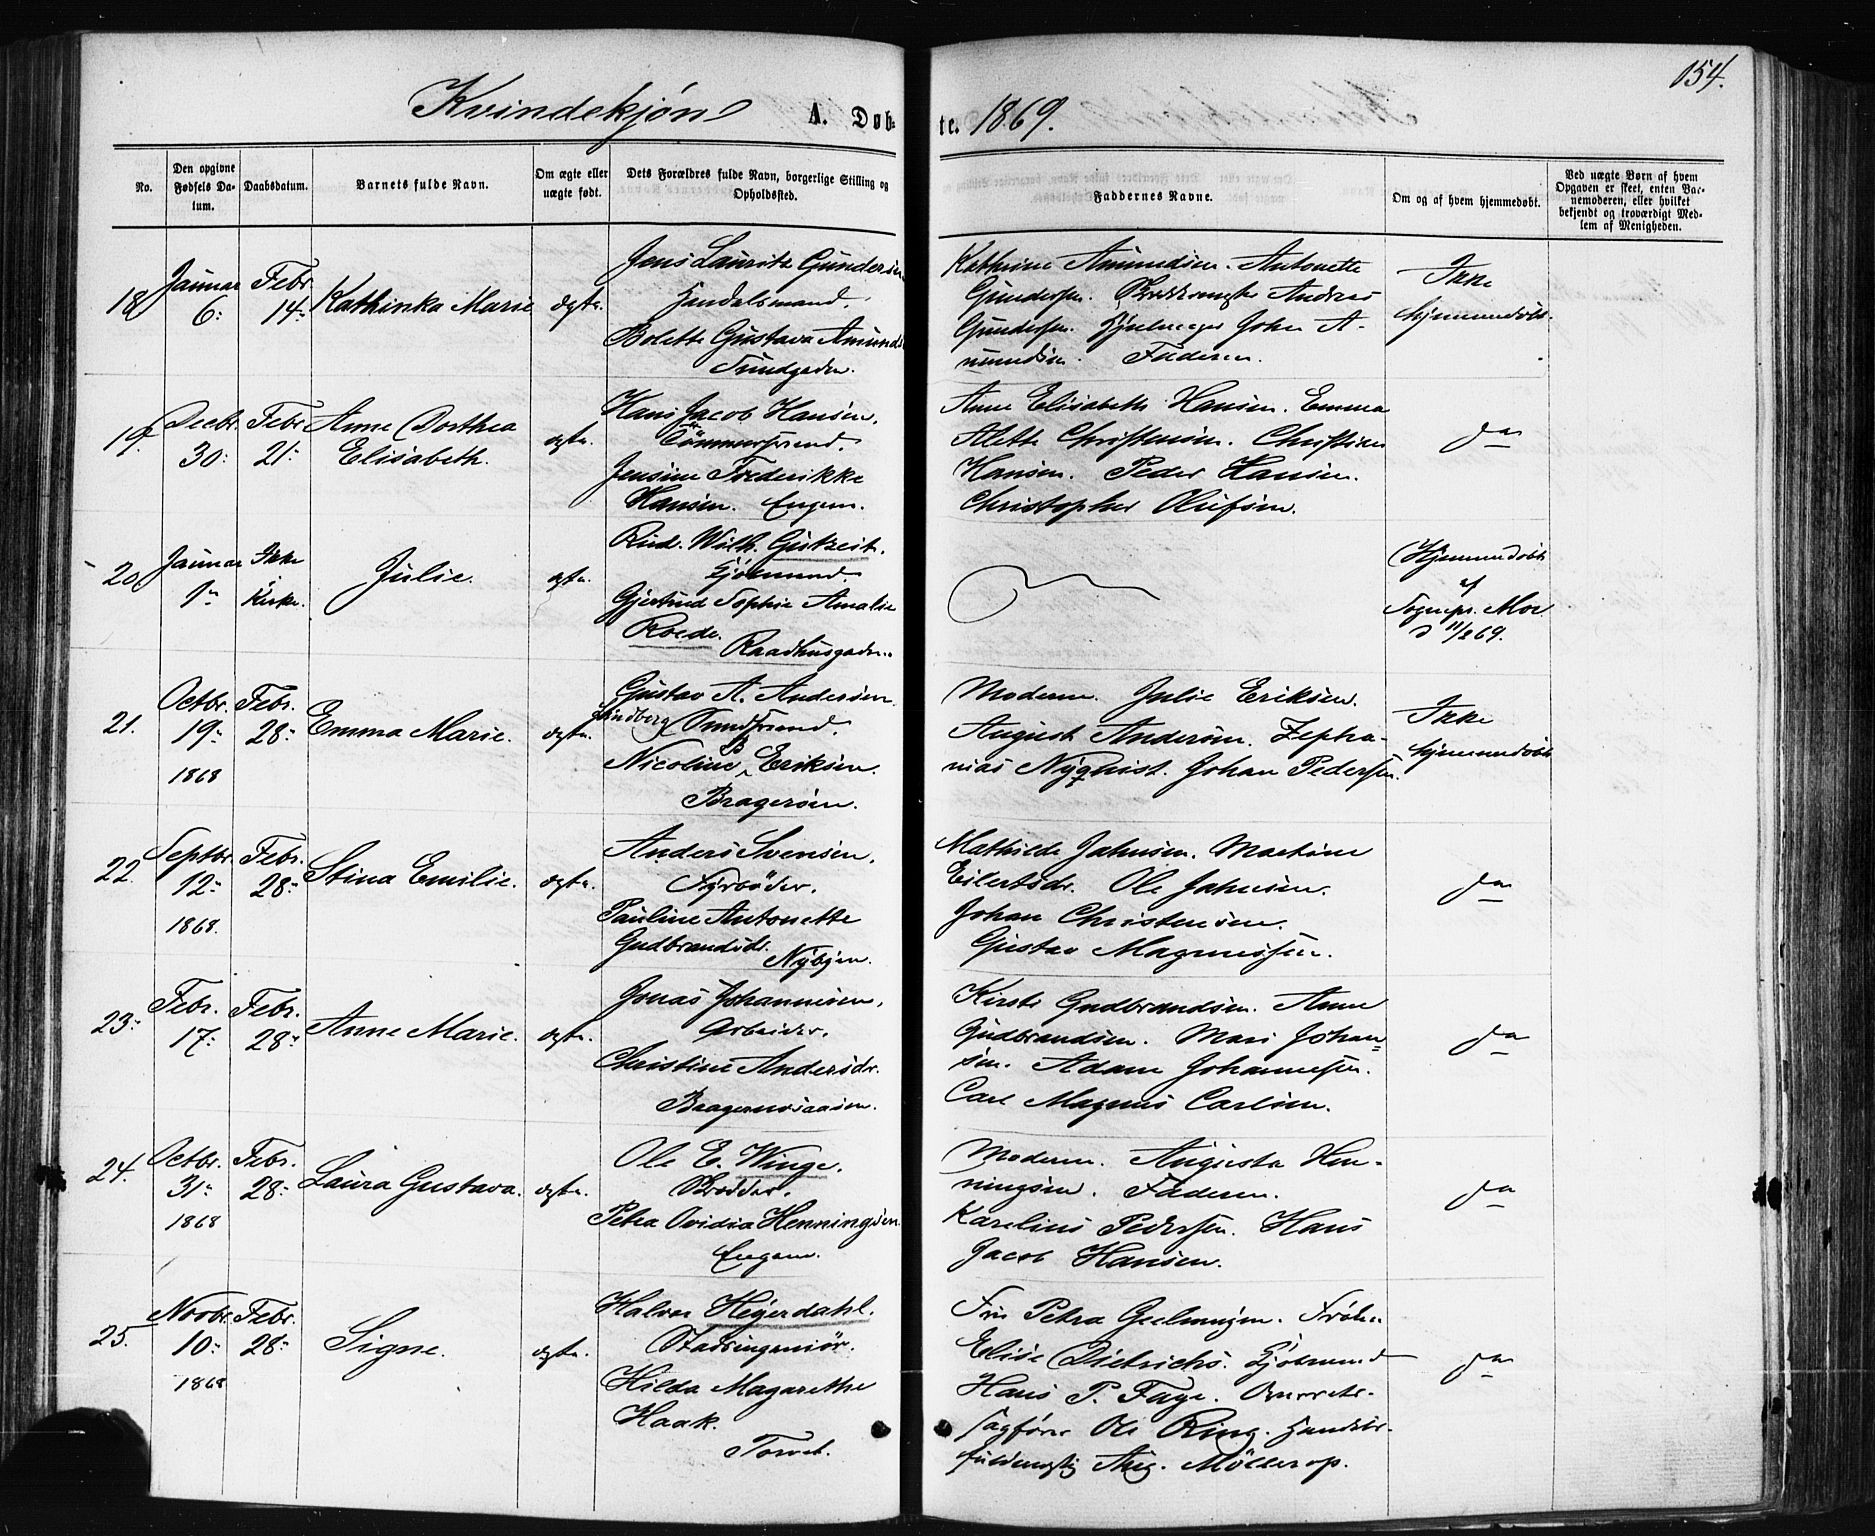 154.
Kvindekjøn A. Døbte. 1869.
No.
Den opgivne Fødsels Datum.
Daabsdatum.
Barnets fulde Navn.
Om ægte eller uægte født.
Dets Forældres fulde Navn, borgerlige Stilling og Opholdssted.
Faddernes Navne.
Om og af hvem hjemmedøbt.
Ved uægte Børn af hvem Opgaven er skeet, enten Barnemoderen, eller hvilket bekjendt og troværdigt Medlem af Menigheden.
18
Januar 6:
Febr 14:
Kathinka Marie
ægte.
Jens Lauritz Gundersen
Handelsmand.
Bolette Gustava Amunds
Sundgaden.
Kathrine Amundsen. Antonette
Gundersen. Andreas
Gundersen. Hjulmager Johan A-
mundsen. Faderen.
Ikke
hjemmedøbt.
19.
Decbr. 30:
Febr 21:
Anne Dorthea
Elisabeth.
ægte.
Hans Jacob Hansen.
Tømmermand.
Jensine Frederikke
Hansen. Engen.
Anne Elisabeth Hansen. Emma
Alette Christensen. Christian
Hansen. Peder Hansen.
Christopher Olufsen.
do
20
Januar 1
Ikke
Kirke.
Julie.
ægte.
Rud. Wilh. Gutzeit.
Kjøbmand.
Gjertrud Sophie Amalie
Roede.
Raadhusgaden.
Hjemmedøbt
af
Sognepr. Moe
d 11/2 69.
21.
Octbr. 19:
1868
Febr. 28:
Emma Marie.
ægte.
Gustav A. Andersen
Lindberg
Nicoline B Eriksen.
Bragerøen.
Moderen. Julie Eriksen.
August Andersen. Zepha-
nias Nyqvist. Johan Pedersen.
Ikke
hjemmedøbt
22.
Septbr. 12:
1868.
Febr. 28:
Stina Emilie.
ægte.
Anders Svensen.
Fyrbøder.
Pauline Antonette
Gudbrandsdr. Nybyen.
Mathilde Jahnsen. Martine
Eilertsdr. Ole Jahnsen.
Johan Christensen.
Gustav Magnussen.
do
23:
Febr. 17:
Febr. 28:
Anne Marie.
ægte.
Jonas Johannesen.
Arbeider.
Christine Andersdr.
Bragernesaasen.
Kirsti Gudbrandsen. Anne
Gudbrandsen. Mari Johan=
sen. Adam Johannesen.
Carl Magnus Carlsen.
do
24.
Octbr. 31:
1868
Febr. 28:
Laura Gustava.
ægte.
Ole E. Winge.
Petra Ovidia Henningsen
Engene.
Moderen. Augusta Hen-
ningsen. Faderen.
Karelius Pedersen. Hans
Jacob Hansen.
do
25.
Novbr. 10:
1868
Febr. 28:
Signe.
ægte.
Halvor Heyerdahl.
Stadsingeniør.
Hilda Magarethe
Haak.
Torvet.
Fru Petra Geelmuyden. Frøken
Elise Dietrichs. Kjøbmand
Hans P. Faye. Overrets-
sagfører Ole Ring. Handels-
fuldmægtig Aug. Møllerop.
do